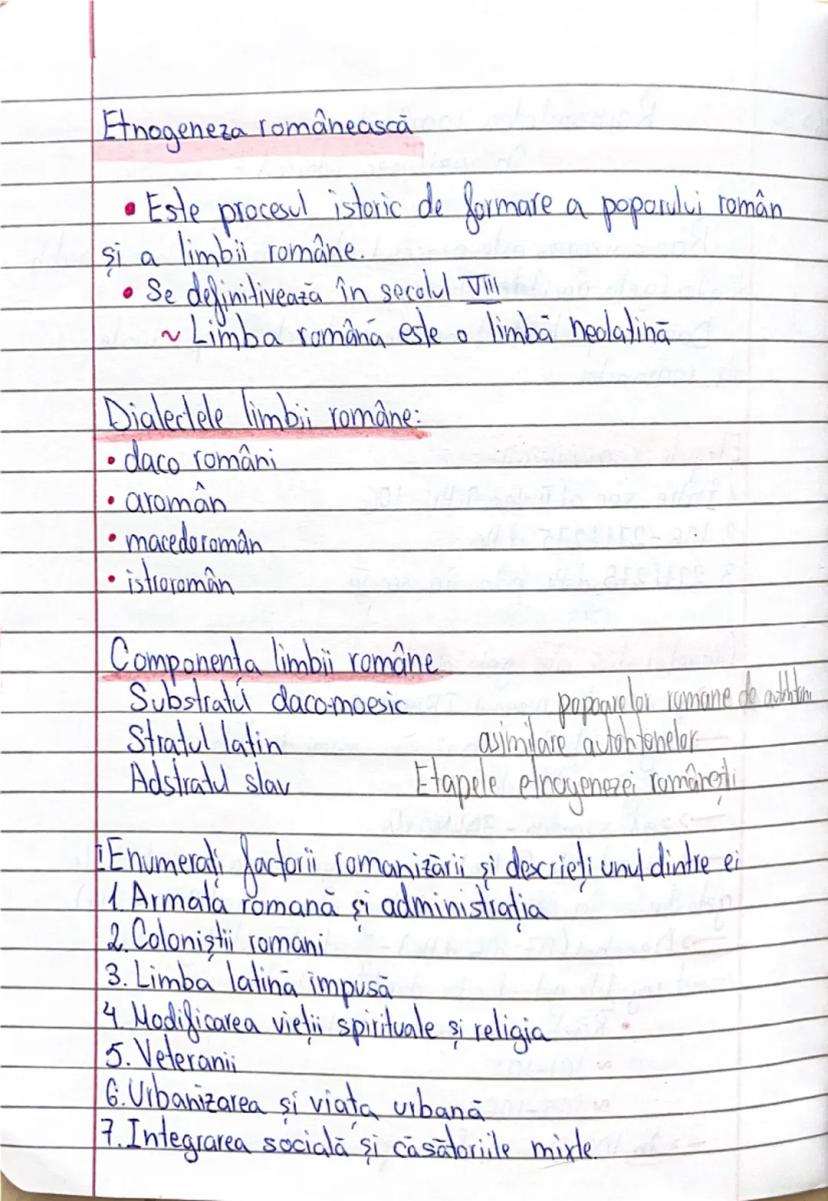 Etnogeneza românească
• Este procesul istoric de formare a poporului român
și a limbii române.
• Se definitivează în secolul VIII
~ Limba română este o limbă neolatină
Dialectele limbii române:
• daco români
• aromân
• macedoromân
• istroromân
Componența limbii române
Substratul daco-moesic
popoarelor romane de
Stratul latin
asimilare autohtonelor
Adstratul slav
Etapele etnogenezei românești
! Enumerați factorii romanizării și descrieți unul dintre ei
1. Armata romană și administrația
2. Coloniștii romani
3. Limba latină impusă
4. Modificarea vieții spirituale și religia
5. Veteranii
6. Urbanizarea și viața urbană
7. Integrarea socială și căsătoriile mixte